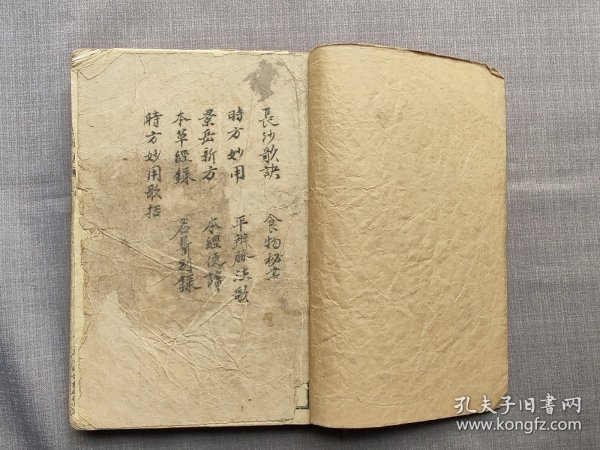 長沙歌訣 食物秘書
時方妙用 平辨脉法歌
景岳新方 本經便讀
本草經錄 名醫別錄
時方妙用歌括
孔夫子旧书网
www.kongfz.com